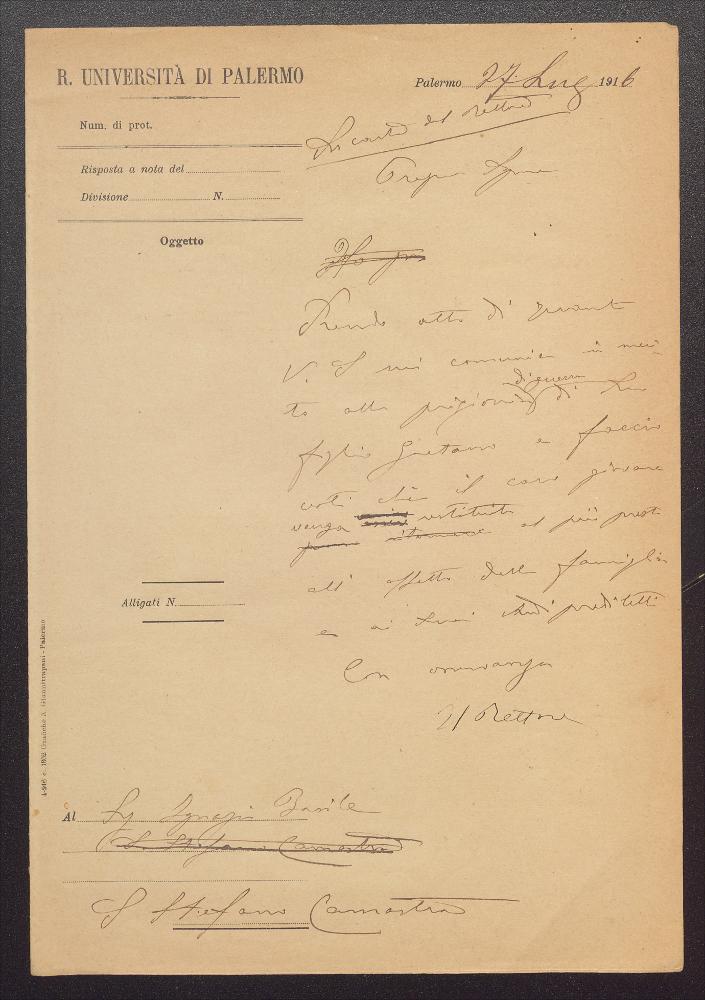 R. UNIVERSITÀ DI PALERMO
Palermo 27 Lug 1916
Num. di prot.
In carta del Rettore
Risposta a nota del
Divisione N.
Oggetto
Prendo atto di quanto
V. S mi comunica in meri
to alla prigionia di guerra di Suo
figlio Gaetano e faccio
voti che il caro giovane
venga restituito al più presto
all' affetto della famiglia
e ai suoi studi prediletti
Con osservanza
Il Rettore
Alligati N.
Al Sig Ignazio Basile
S. Stefano Camastra
S Stefano Camastra